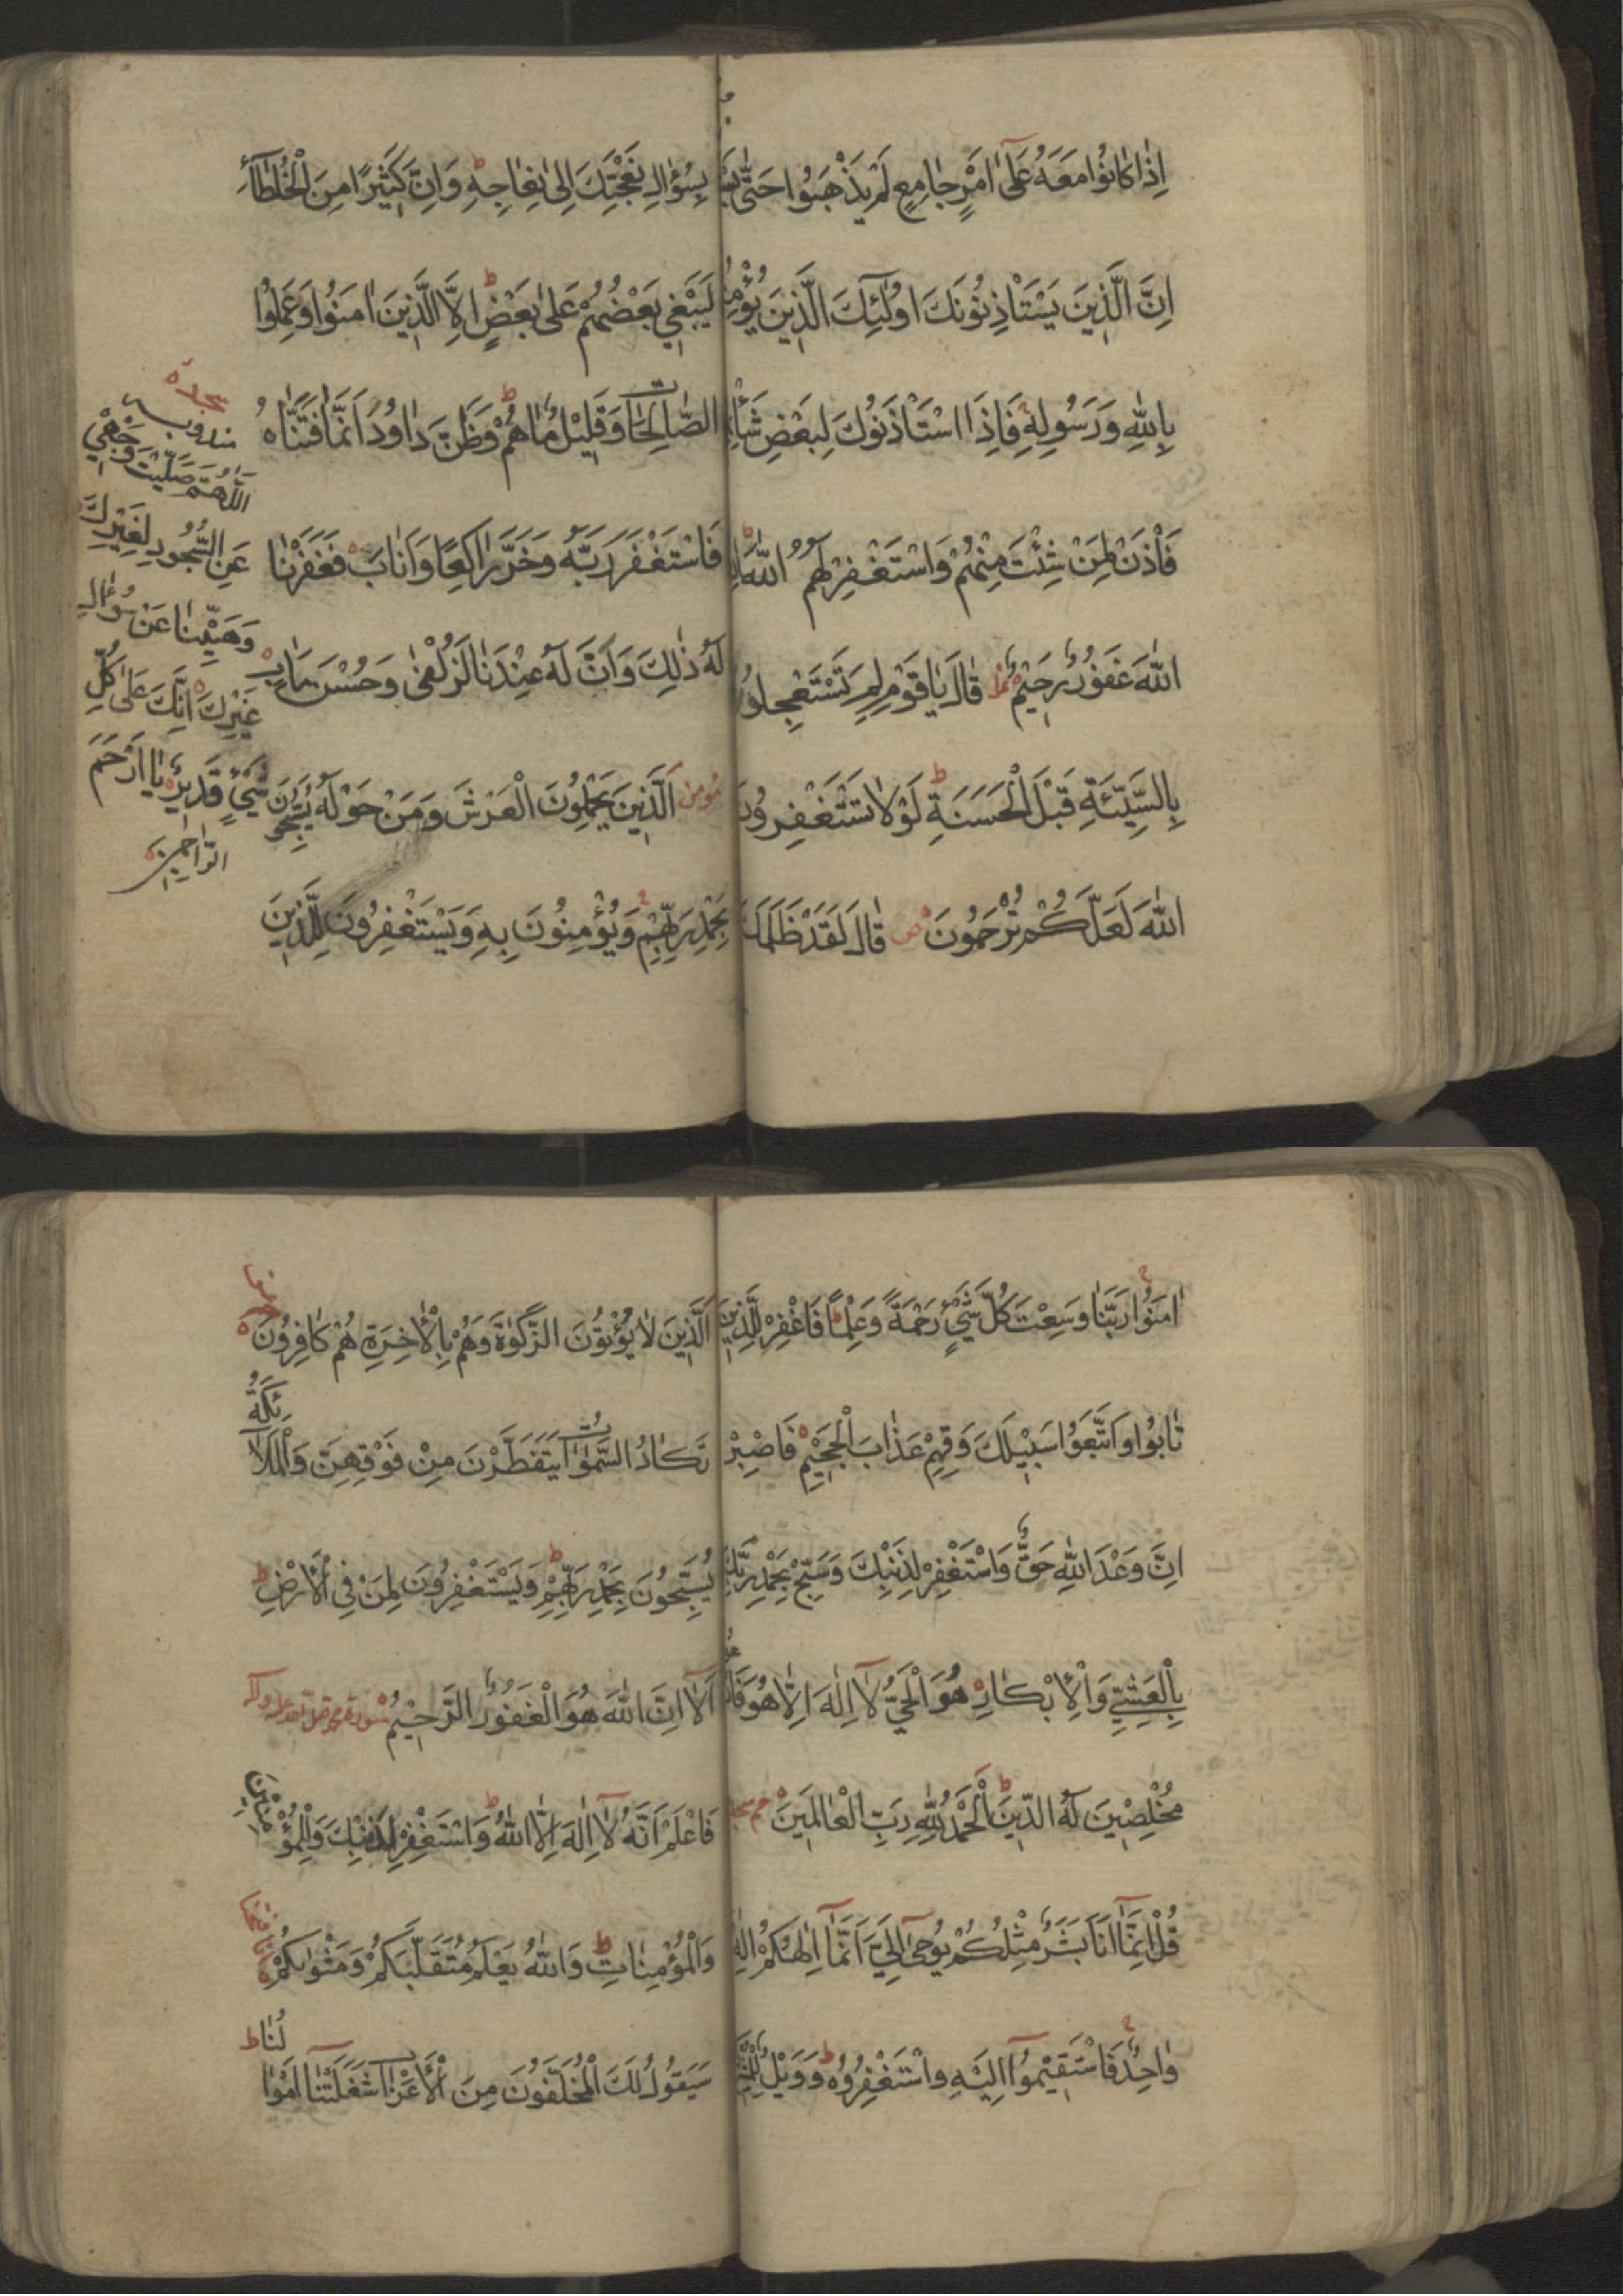 اِذَا كَانُوا مَعَهُ عَلٰٓى اَمْرٍ جَامِعٍ لَمْ يَذْهَبُوا حَتّٰى
اِنَّ الَّذِينَ يَسْتَاْذِنُونَكَ اُولٰٓئِكَ الَّذِينَ يُؤْمِنُ
بِاللّٰهِ وَرَسُولِهِ فَاِذَا اسْتَاْذَنُوكَ لِبَعْضِ شَاْنِ
فَاْذَنْ لِمَنْ شِئْتَ مِنْهُمْ وَاسْتَغْفِرْ لَهُمُ اللّٰهَ اِ
اللّٰهَ غَفُورٌ رَحِيمٌ نمل قَالَ يَا قَوْمِ لِمَ تَسْتَعْجِلُو
بِالسَّيِّئَةِ قَبْلَ الْحَسَنَةِ لَوْلَا تَسْتَغْفِرُونَ
اللّٰهَ لَعَلَّكُمْ تُرْحَمُونَ ص قَالَ لَقَدْ ظَلَمَكَ
بِسُؤَالِ نَعْجَتِكَ اِلٰى نِعَاجِهِ وَاِنَّ كَثِيرًا مِنَ الْخُلَطَآءِ
لَيَبْغِي بَعْضُهُمْ عَلٰى بَعْضٍ اِلَّا الَّذِينَ اٰمَنُوا وَعَمِلُوا
الصَّالِحَاتِ وَقَلِيلٌ مَا هُمْ وَظَنَّ دَاوُدُ اَنَّمَا فَتَنَّاهُ
فَاسْتَغْفَرَ رَبَّهُ وَخَرَّ رَاكِعًا وَاَنَابَ فَغَفَرْنَا
لَهُ ذٰلِكَ وَاِنَّ لَهُ عِنْدَنَا لَزُلْفٰى وَحُسْنَ مَاٰبٍ
مؤمن اَلَّذِينَ يَحْمِلُونَ الْعَرْشَ وَمَنْ حَوْلَهُ يُسَبِّحُونَ
بِحَمْدِ رَبِّهِمْ وَيُؤْمِنُونَ بِهِ وَيَسْتَغْفِرُونَ لِلَّذِينَ
سجده
مندوبه
اَللّٰهُمَّ صَلَّيْتَ وَجْهِي
عَنِ السُّجُودِ لِغَيْرِكَ
عَنْ سُؤَالِ
غَيْرِكَ اِنَّكَ عَلٰى كُلِّ
شَيْءٍ قَدِيرٌ يَا اَرْحَمَ
الرَّاحِمِينَ
اٰمَنُوا رَبَّنَا وَسِعْتَ كُلَّ شَيْءٍ رَحْمَةً وَعِلْمًا فَاغْفِرْ لِلَّذِينَ
تَابُوا وَاتَّبَعُوا سَبِيلَكَ وَقِهِمْ عَذَابَ الْجَحِيمِ فَاصْبِرْ
اِنَّ وَعْدَ اللّٰهِ حَقٌّ وَاسْتَغْفِرْ لِذَنْبِكَ وَسَبِّحْ بِحَمْدِ رَبِّكَ
بِالْعَشِيِّ وَالْاِبْكَارِ هُوَ الْحَيُّ لَآ اِلٰهَ اِلَّا هُوَ فَادْعُو
مُخْلِصِينَ لَهُ الدِّينَ اَلْحَمْدُ لِلّٰهِ رَبِّ الْعَالَمِينَ حم سجد
قُلْ اِنَّمَآ اَنَا بَشَرٌ مِثْلُكُمْ يُوحٰٓى اِلَيَّ اَنَّمَآ اِلٰهُكُمْ اِلٰهٌ
وَاحِدٌ فَاسْتَقِيمُوٓا اِلَيْهِ وَاسْتَغْفِرُوهُ وَوَيْلٌ لِلْمُ
اَلَّذِينَ لَا يُؤْتُونَ الزَّكٰوةَ وَهُمْ بِالْاٰخِرَةِ هُمْ كَافِرُونَ
تَكَادُ السَّمٰوَاتُ يَتَفَطَّرْنَ مِنْ فَوْقِهِنَّ وَالْمَلَآئِكَةُ
يُسَبِّحُونَ بِحَمْدِ رَبِّهِمْ وَيَسْتَغْفِرُونَ لِمَنْ فِي الْاَرْضِ
اَلَآ اِنَّ اللّٰهَ هُوَ الْغَفُورُ الرَّحِيمُ سورة محمد
فَاعْلَمْ اَنَّهُ لَآ اِلٰهَ اِلَّا اللّٰهُ وَاسْتَغْفِرْ لِذَنْبِكَ وَلِلْمُؤْمِنِينَ
وَالْمُؤْمِنَاتِ وَاللّٰهُ يَعْلَمُ مُتَقَلَّبَكُمْ وَمَثْوٰيكُمْ
سَيَقُولُ لَكَ الْمُخَلَّفُونَ مِنَ الْاَعْرَابِ شَغَلَتْنَآ اَمْوَالُنَا